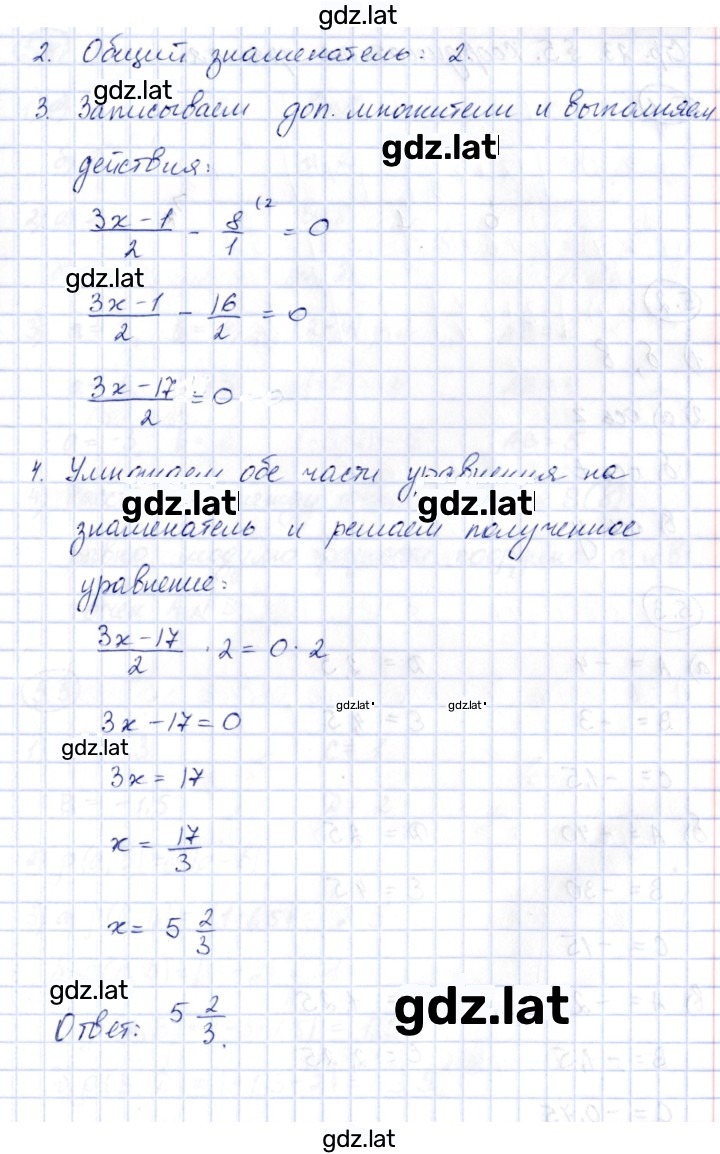 gdz.lat
2. Общий знаменатель: 2.
gdz.lat
3. Записываем доп. множители и выполняем
gdz.lat
действия:
(3x-1)/2 - 8/1 (2 = 0
gdz.lat
(3x-1)/2 - 16/2 = 0
(3x-17)/2 = 0
4. Умножаем обе части уравнения на
gdz.lat gdz.lat
знаменатель и решаем полученное
уравнение:
(3x-17)/2 · 2 = 0 · 2
gdz.lat gdz.lat
3x - 17 = 0
gdz.lat
3x = 17
x = 17/3
x = 5 2/3
gdz.lat
gdz.lat
Ответ: 5 2/3.
gdz.lat